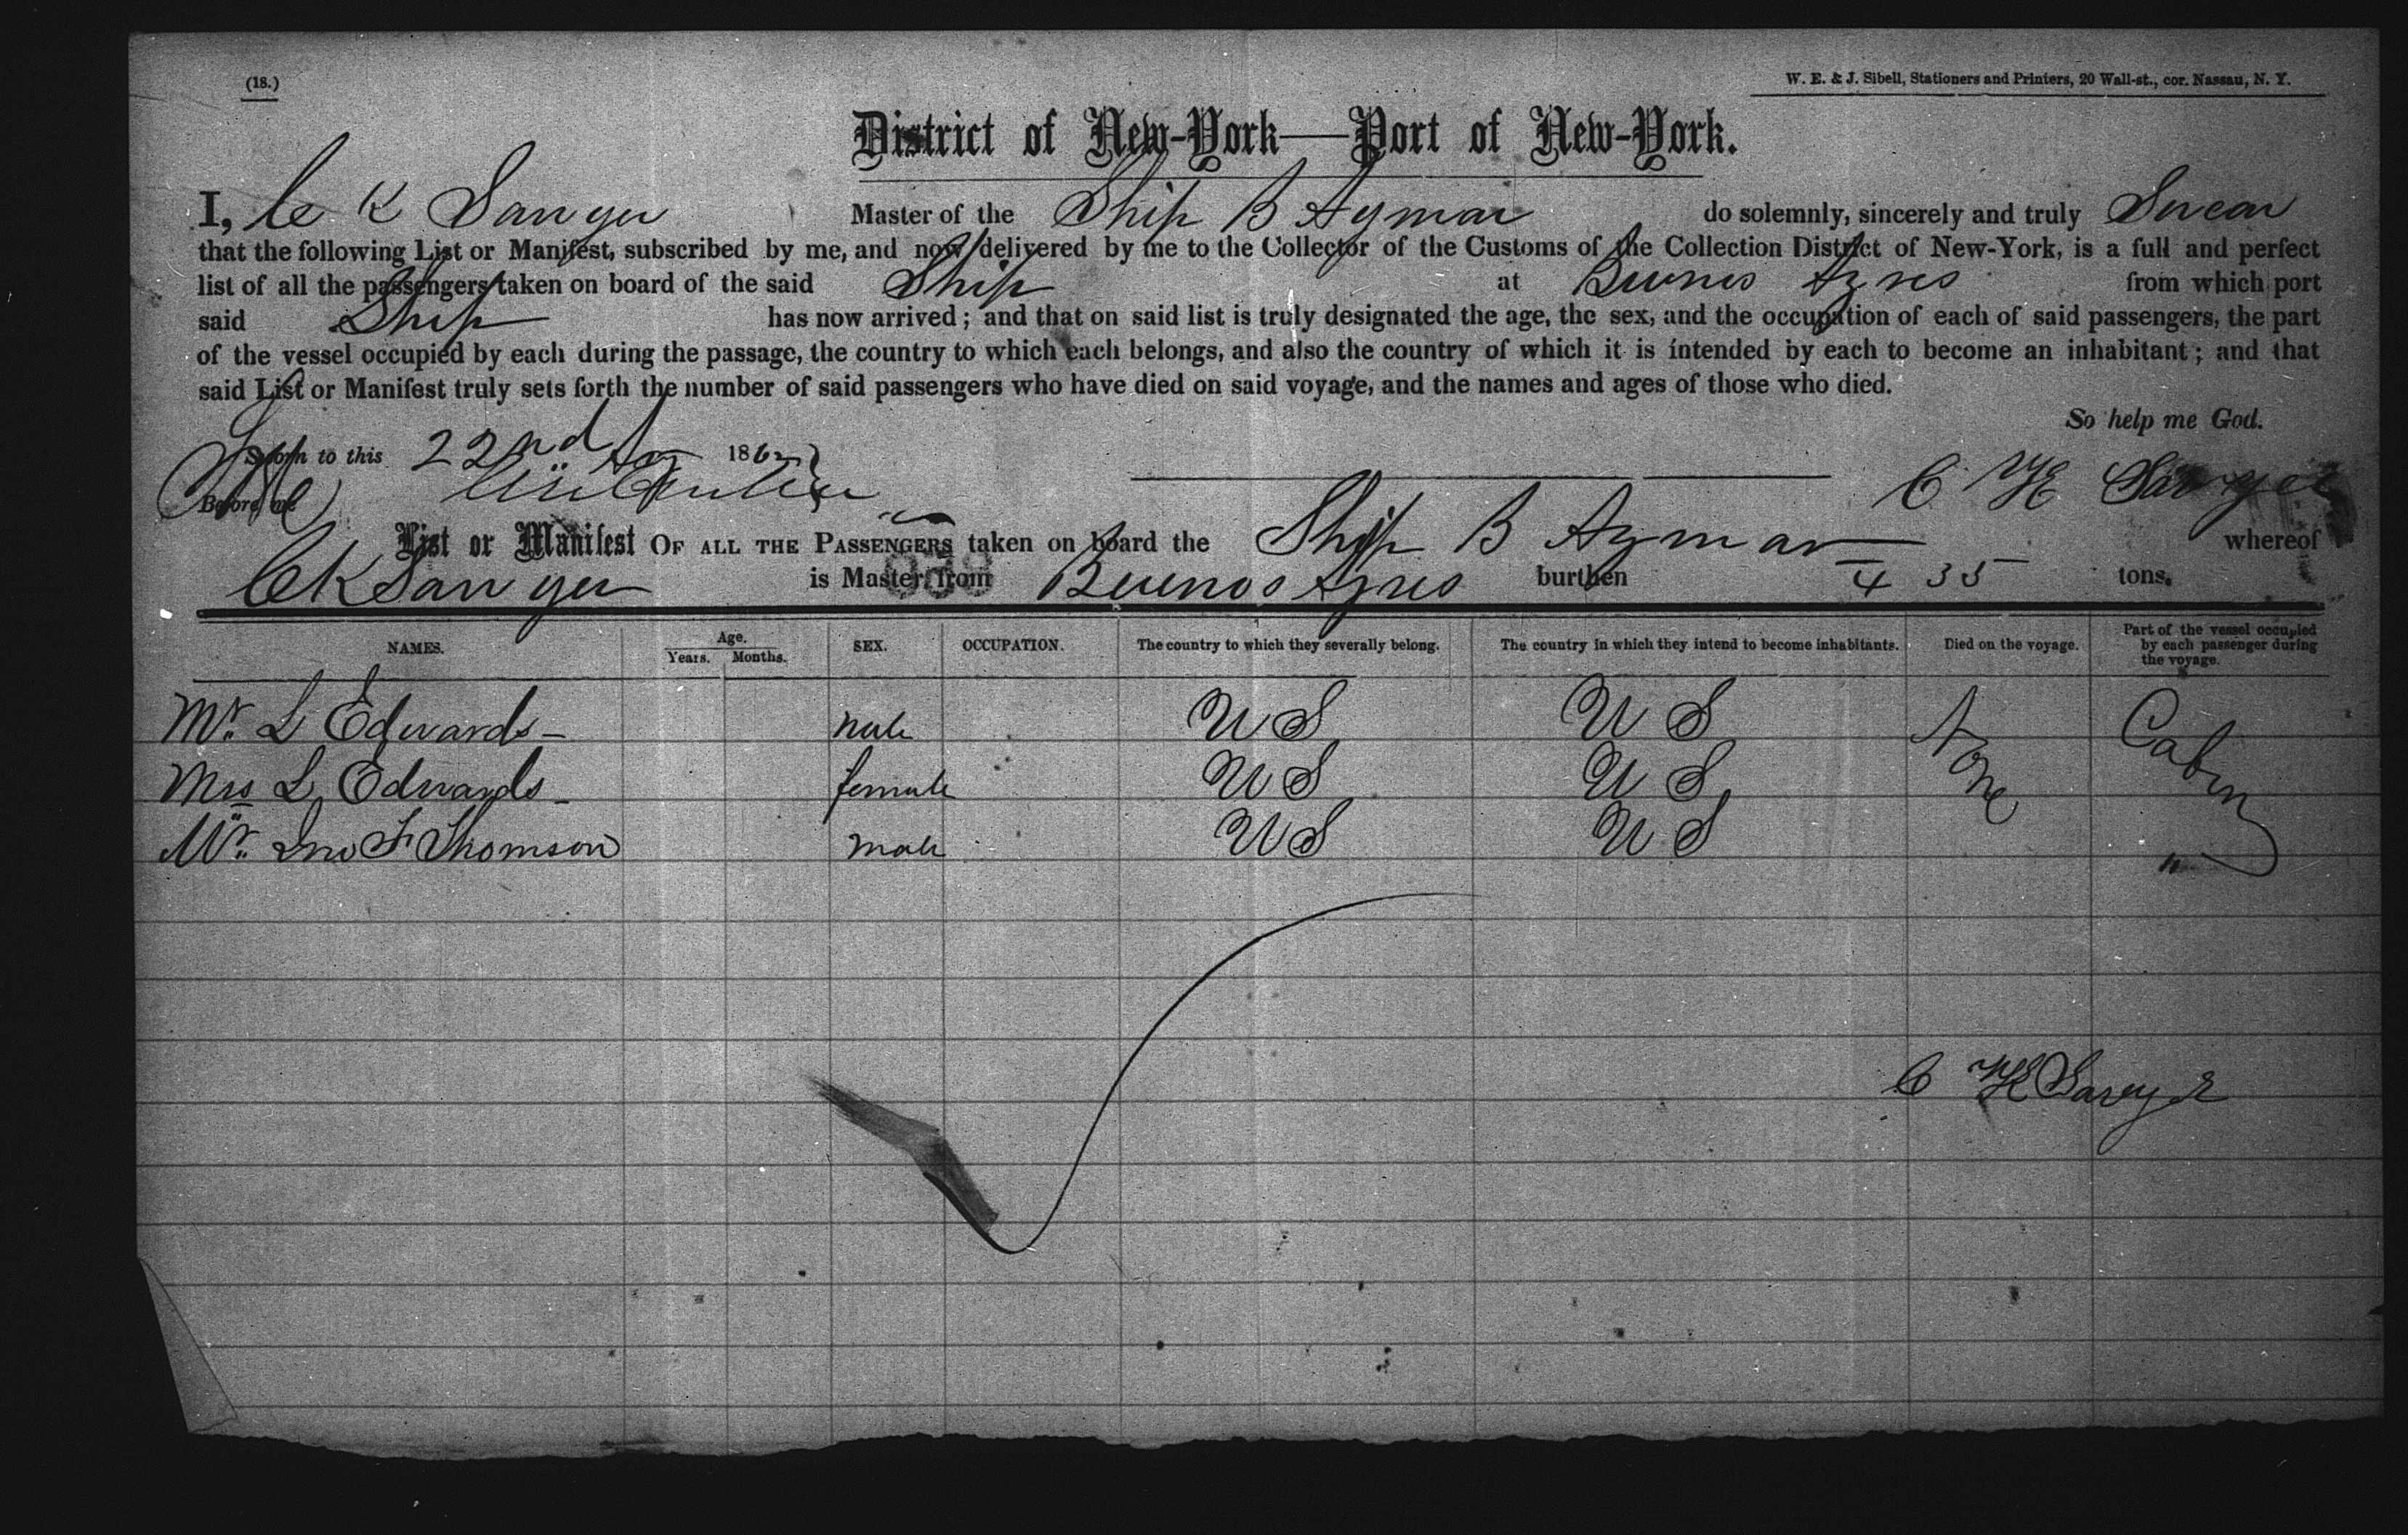 (18.)
W. E. & J. Sibell, Stationers and Printers, 20 Wall-st., cor. Nassau, N. Y.
District of New-York—Port of New-York.
I, C K Sawyer Master of the Ship B Aymar do solemnly, sincerely and truly Swear
that the following List or Manifest, subscribed by me, and now delivered by me to the Collector of the Customs of the Collection District of New-York, is a full and perfect
list of all the passengers taken on board of the said Ship at Buenos Ayres from which port
said Ship has now arrived; and that on said list is truly designated the age, the sex, and the occupation of each of said passengers, the part
of the vessel occupied by each during the passage, the country to which each belongs, and also the country of which it is intended by each to become an inhabitant; and that
said List or Manifest truly sets forth the number of said passengers who have died on said voyage, and the names and ages of those who died.
So help me God.
Sworn to this 22nd 1862
Before me
C K Sawyer
List or Manifest OF ALL THE PASSENGERS taken on board the Ship B Aymar whereof
C K Sawyer is Master, from Buenos Ayres burthen 435 tons.
NAMES. Age. Years. Months. SEX. OCCUPATION. The country to which they severally belong. The country in which they intend to become inhabitants. Died on the voyage. Part of the vessel occupied by each passenger during the voyage.
Mr. L Edwards – male U S U S None Cabin
Mrs L Edwards – female U S U S
Mr. Jno F Thomson male U S U S "
C K Sawyer